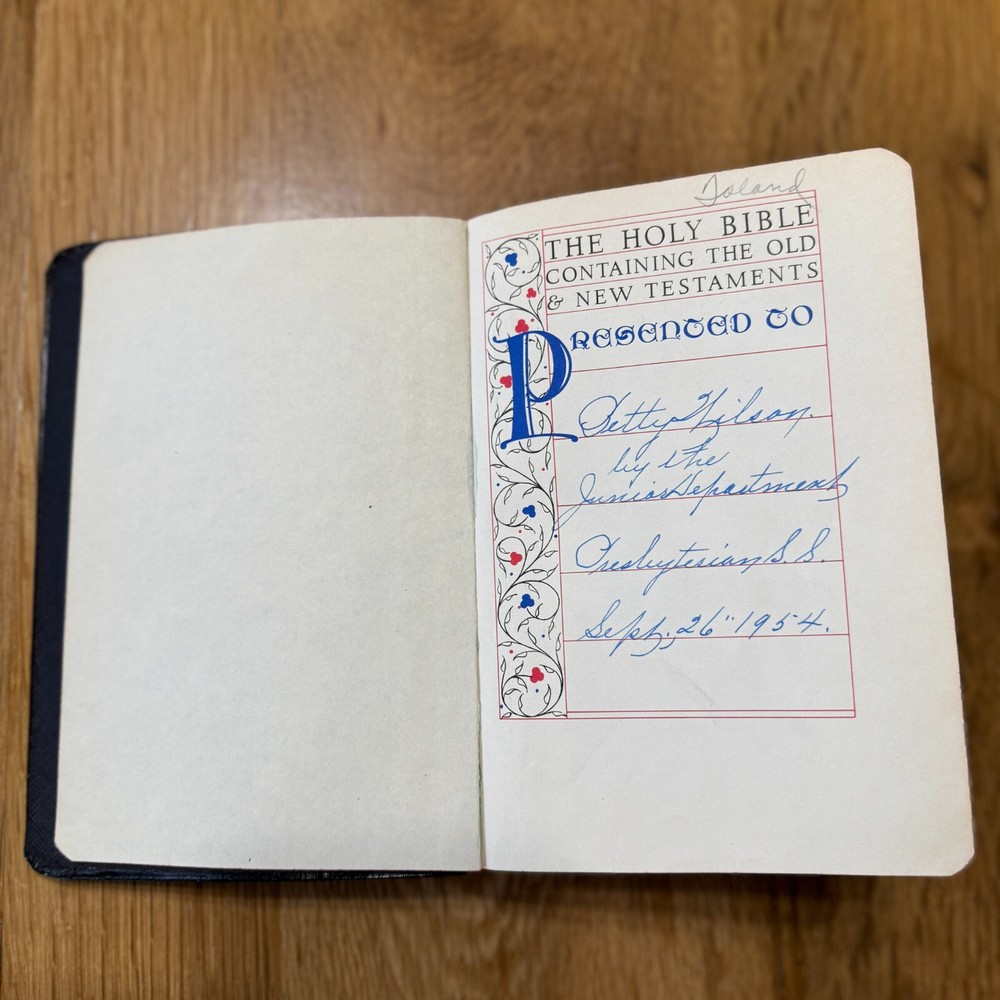 Toland
THE HOLY BIBLE
CONTAINING THE OLD
& NEW TESTAMENTS
PRESENTED TO
Betty Wilson.
by the
Junior Department
Presbyterian S. S.
Sept. 26" 1954.